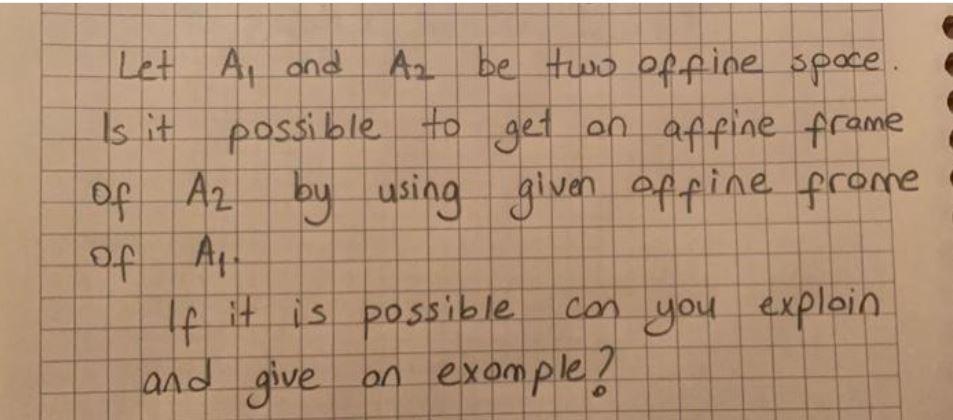 Let A₁ and A₂ be two affine space.
Is it possible to get an affine frame
of A₂ by using given affine frame
of A₁.
If it is possible can you explain
and give an example?